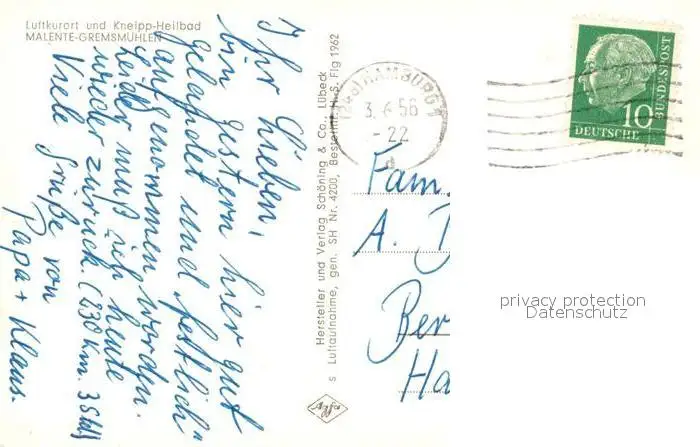 Luftkurort und Kneipp-Heilbad
MALENTE-GREMSMÜHLEN
Ihr Lieben,
bin gestern hier gut
gelandet und "festlich"
aufgenommen worden.
Leider muß ich heute
wieder zurück. (230 km. 3 Std)
Viele Grüße von
Papa + Klaus.
Hersteller und Verlag Schöning & Co., Lübeck
s Luftaufnahme, gen. SH Nr. 4200, Bestellnr. H.-S. Flg 1962
Agfa
HAMBURG 1
3. 6. 56
- 22
d
10
DEUTSCHE
BUNDESPOST
Fam.
A.
Ber
Ha
privacy protection
Datenschutz